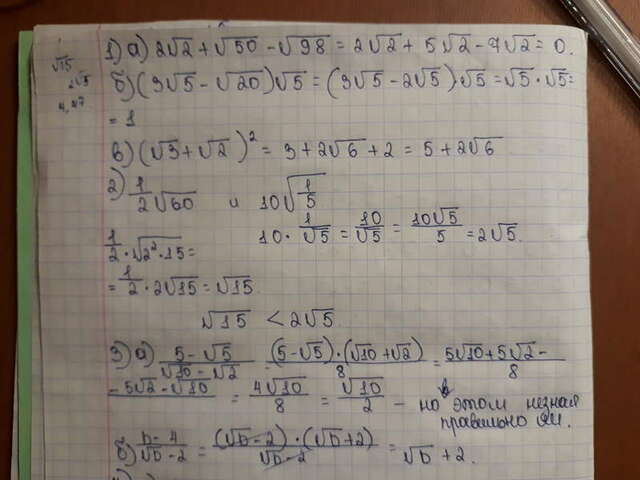 √15
2√5
4,47
1) а) 2√2 + √50 - √98 = 2√2 + 5√2 - 7√2 = 0.
б) (3√5 - √20)√5 = (3√5 - 2√5)·√5 = √5·√5 =
= 1
в) (√3 + √2)² = 3 + 2√6 + 2 = 5 + 2√6
2) 1/2 √60 и 10√(1/5)
10 · 1/√5 = 10/√5 = 10√5/5 = 2√5.
1/2 · √(2²·15) =
= 1/2 · 2√15 = √15.
√15 < 2√5.
3) а) (5 - √5)/(√10 - √2) = (5 - √5)·(√10 + √2)/8 = 5√10 + 5√2 -/8
- 5√2 - √10 = 4√10/8 = √10/2 - но в этом незная
правильно ли.
б) (b - 4)/(√b - 2) = (√b - 2)·(√b + 2)/(√b - 2) = √b + 2.